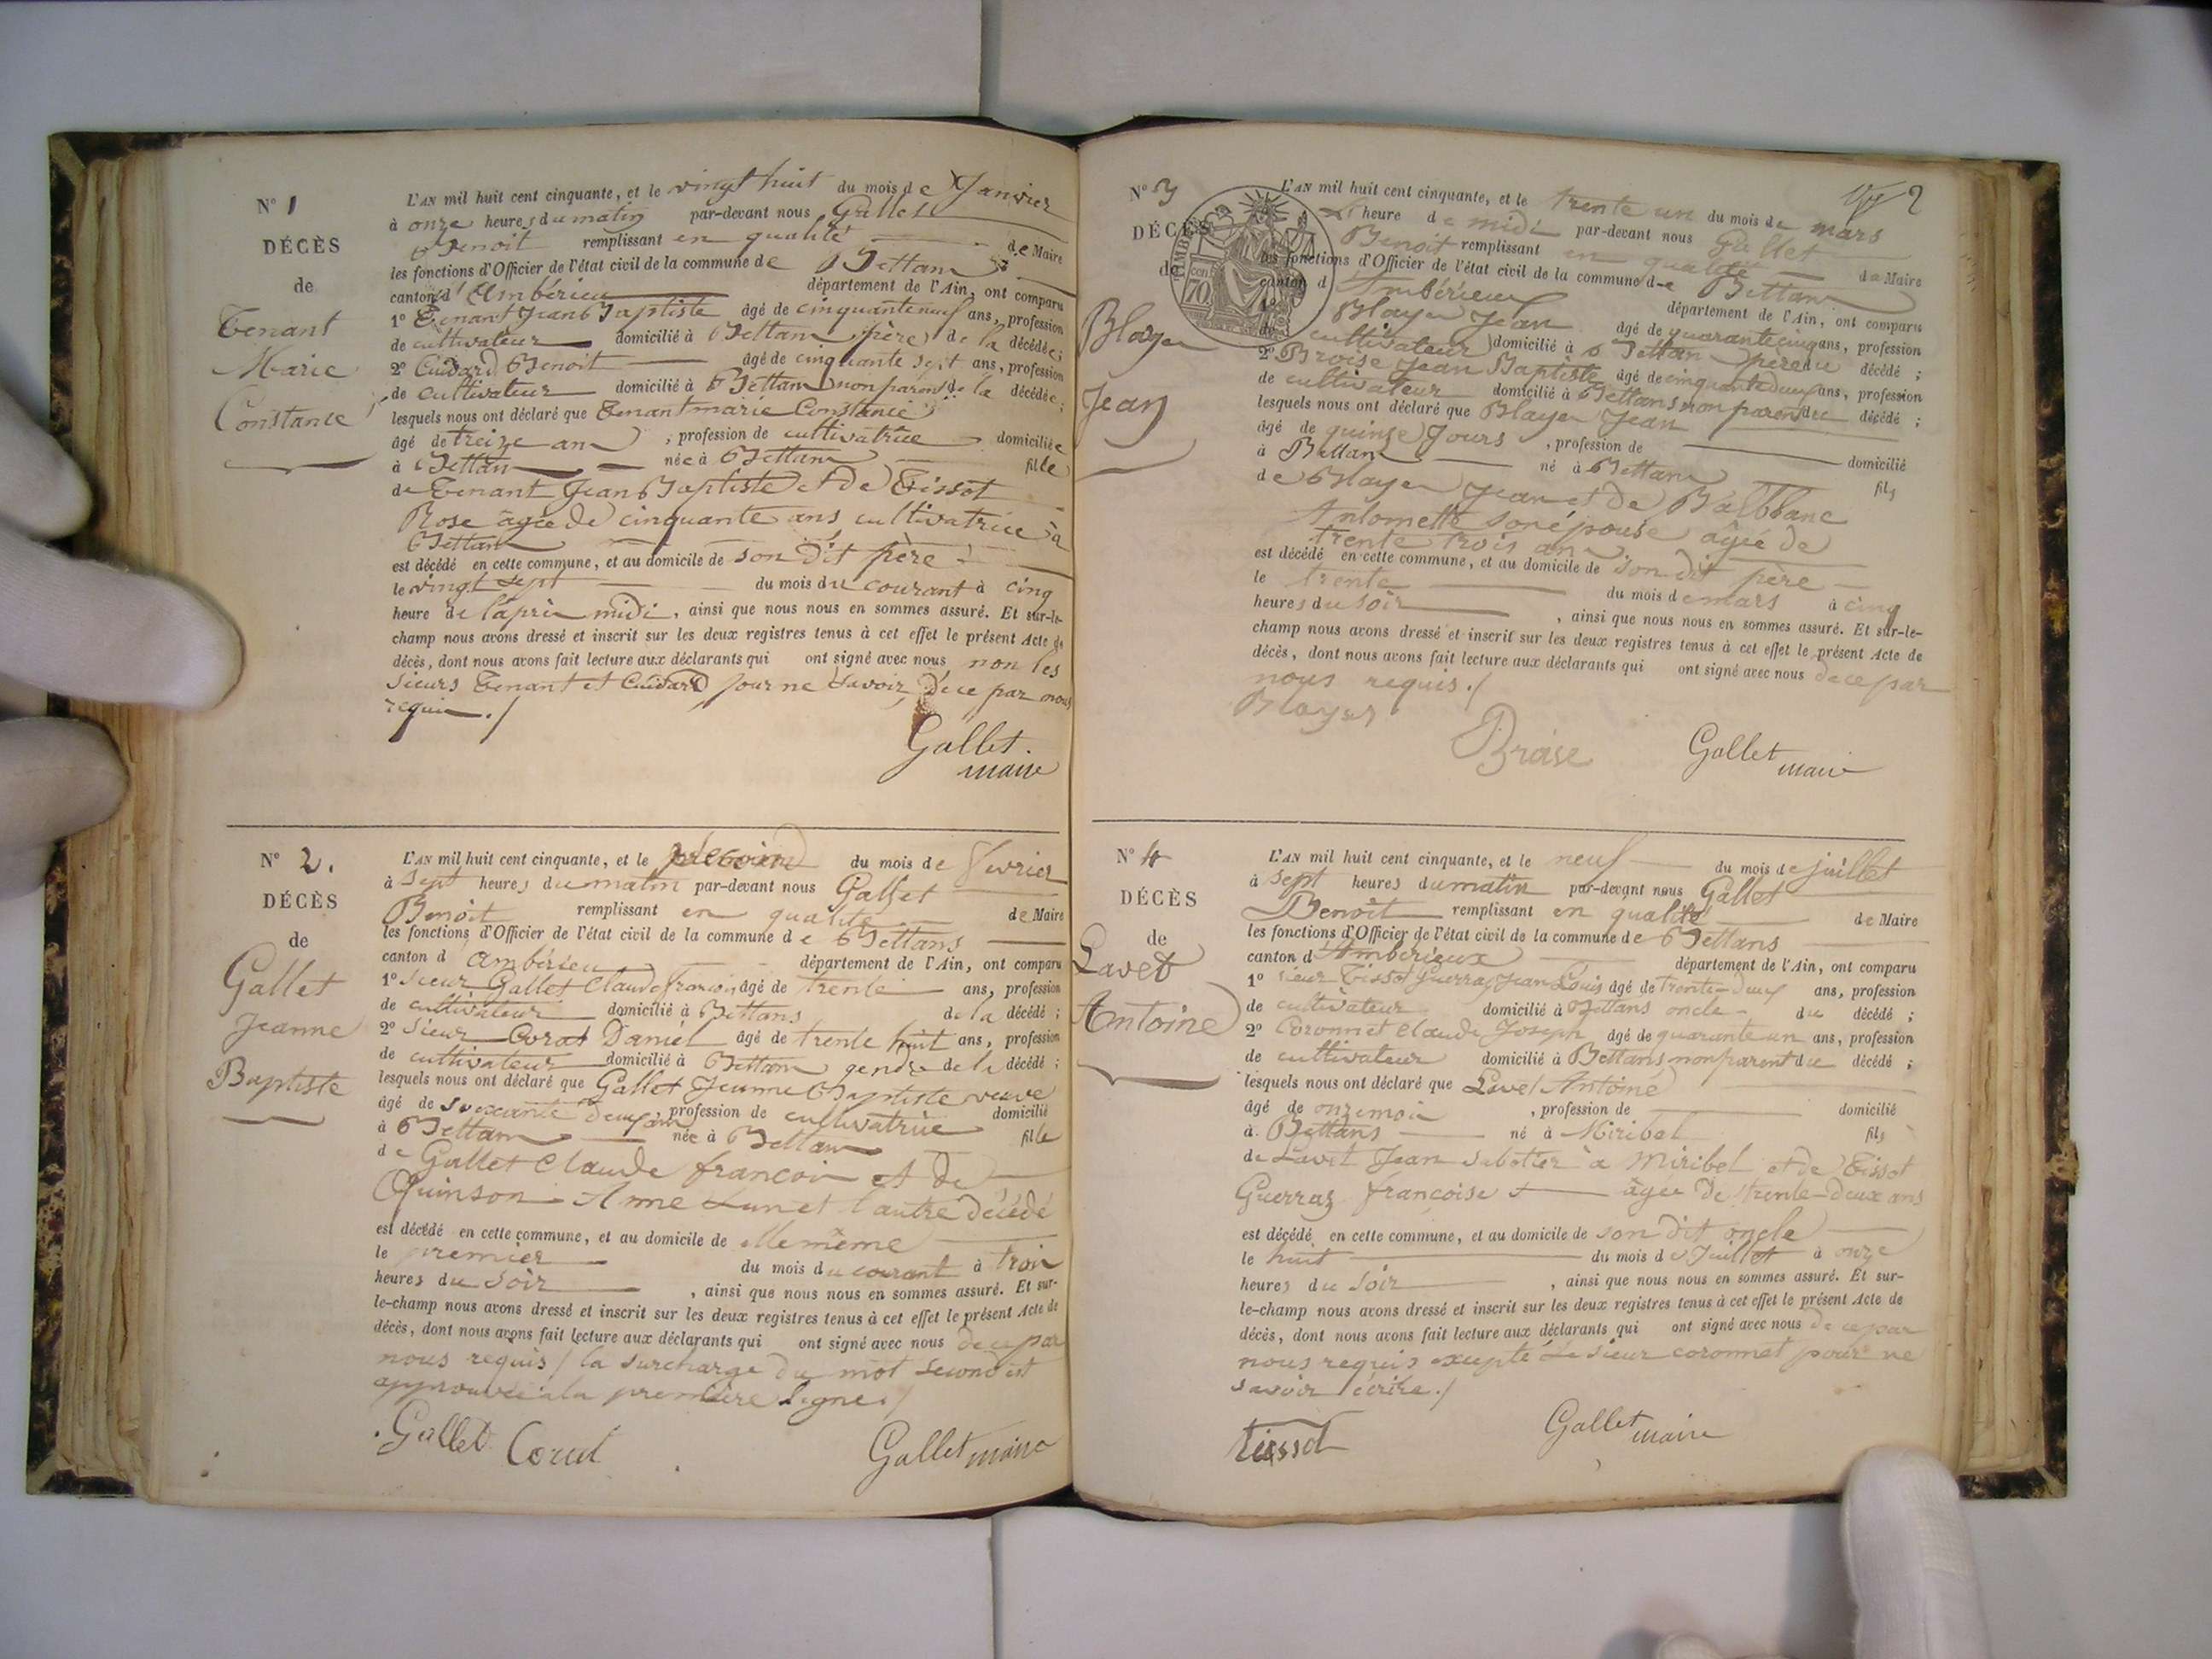 N° 1
DÉCÈS
de
Tenant
Marie
Constance
L'AN mil huit cent cinquante, et le vingt huit du mois de Janvier
à onze heures du matin par-devant nous Gallet
Benoit remplissant en qualité de Maire
les fonctions d'Officier de l'état civil de la commune de Bettans
canton d'Ambérieu département de l'Ain, ont comparu
1° Tenant Jean Baptiste âgé de cinquante neuf ans, profession
de cultivateur domicilié à Bettans père de la décédée;
2° Cuidard Benoit âgé de cinquante sept ans, profession
de cultivateur domicilié à Bettans non parent de la décédée;
lesquels nous ont déclaré que Tenant marie Constance
âgé de treize ans, profession de cultivatrice domiciliée
à Bettans née à Bettans fille
de Tenant Jean Baptiste et de Tissot
Rose âgée de cinquante ans cultivatrice à
Bettans
est décédé en cette commune, et au domicile de son dit père
le vingt sept du mois du courant à cinq
heure de l'après midi, ainsi que nous nous en sommes assuré. Et sur-le-
champ nous avons dressé et inscrit sur les deux registres tenus à cet effet le présent Acte de
décès, dont nous avons fait lecture aux déclarants qui ont signé avec nous non les
sieurs Tenant et Cuidard pour ne savoir, de ce par nous
requis./
Gallet.
maire
N° 2.
DÉCÈS
de
Gallet
Jeanne
Baptiste
L'AN mil huit cent cinquante, et le second du mois de fevrier
à sept heures du matin par-devant nous Gallet
Benoit remplissant en qualité de Maire
les fonctions d'Officier de l'état civil de la commune de Bettans
canton d'Ambérieu département de l'Ain, ont comparu
1° sieur Gallet Claude françois âgé de trente ans, profession
de cultivateur domicilié à Bettans de la décédé;
2° sieur Corat Daniel âgé de trente huit ans, profession
de cultivateur domicilié à Bettans gendre de la décédé;
lesquels nous ont déclaré que Gallet Jeanne Baptiste veuve
âgé de soixante deux ans, profession de cultivatrice domicilié
à Bettans née à Bettans fille
de Gallet Claude françois et de
Quinson Anne L'un et l'autre décédé
est décédé en cette commune, et au domicile de elle même
le premier du mois du courant à trois
heures du soir, ainsi que nous nous en sommes assuré. Et sur-
le-champ nous avons dressé et inscrit sur les deux registres tenus à cet effet le présent Acte de
décès, dont nous avons fait lecture aux déclarants qui ont signé avec nous de ce par
nous requis / la surcharge du mot second est
approuvée à la première ligne./
Gallet Corat Gallet maire
N° 3
2
DÉCÈS
de
Blayer
Jean
TIMBRE
70
L'AN mil huit cent cinquante, et le trente un du mois de mars
heure de midi par-devant nous Gallet
Benoit remplissant en qualité de Maire
les fonctions d'Officier de l'état civil de la commune de Bettans
canton d'Ambérieux département de l'Ain, ont comparu
1° Blayer Jean âgé de quarante cinq ans, profession
de cultivateur domicilié à Bettans père du décédé;
2° Broise Jean Baptiste âgé de cinquante deux ans, profession
de cultivateur domicilié à Bettans non parent du décédé;
lesquels nous ont déclaré que Blayer Jean
âgé de quinze Jours, profession de domicilié
à Bettans né à Bettans fils
de Blayer Jean et de Balblanc
Antoinette son épouse âgée de
trente trois ans
est décédé en cette commune, et au domicile de son dit père
le trente du mois de mars à cinq
heures du soir, ainsi que nous nous en sommes assuré. Et sur-le-
champ nous avons dressé et inscrit sur les deux registres tenus à cet effet le présent Acte de
décès, dont nous avons fait lecture aux déclarants qui ont signé avec nous de ce par
nous requis./
Blayer
Broise Gallet maire
N° 4
DÉCÈS
de
Lavet
Antoine
L'AN mil huit cent cinquante, et le neuf du mois de juillet
à sept heures du matin par-devant nous Gallet
Benoit remplissant en qualité de Maire
les fonctions d'Officier de l'état civil de la commune de Bettans
canton d'Ambérieux département de l'Ain, ont comparu
1° sieur Tissot Guerraz Jean Louis âgé de trente-deux ans, profession
de cultivateur domicilié à Bettans oncle du décédé;
2° Coronnet Claude Joseph âgé de quarante un ans, profession
de cultivateur domicilié à Bettans non parent du décédé;
lesquels nous ont déclaré que Lavet Antoine
âgé de onze mois, profession de domicilié
à Bettans né à Miribel fils
de Lavet Jean sabotier à Miribel et de Tissot
Guerraz françoise âgée de trente-deux ans
est décédé en cette commune, et au domicile de son dit oncle
le huit du mois de Juillet à onze
heures du soir, ainsi que nous nous en sommes assuré. Et sur-
le-champ nous avons dressé et inscrit sur les deux registres tenus à cet effet le présent Acte de
décès, dont nous avons fait lecture aux déclarants qui ont signé avec nous de ce par
nous requis excepté le sieur coronnet pour ne
savoir écrire./
tissot Gallet maire